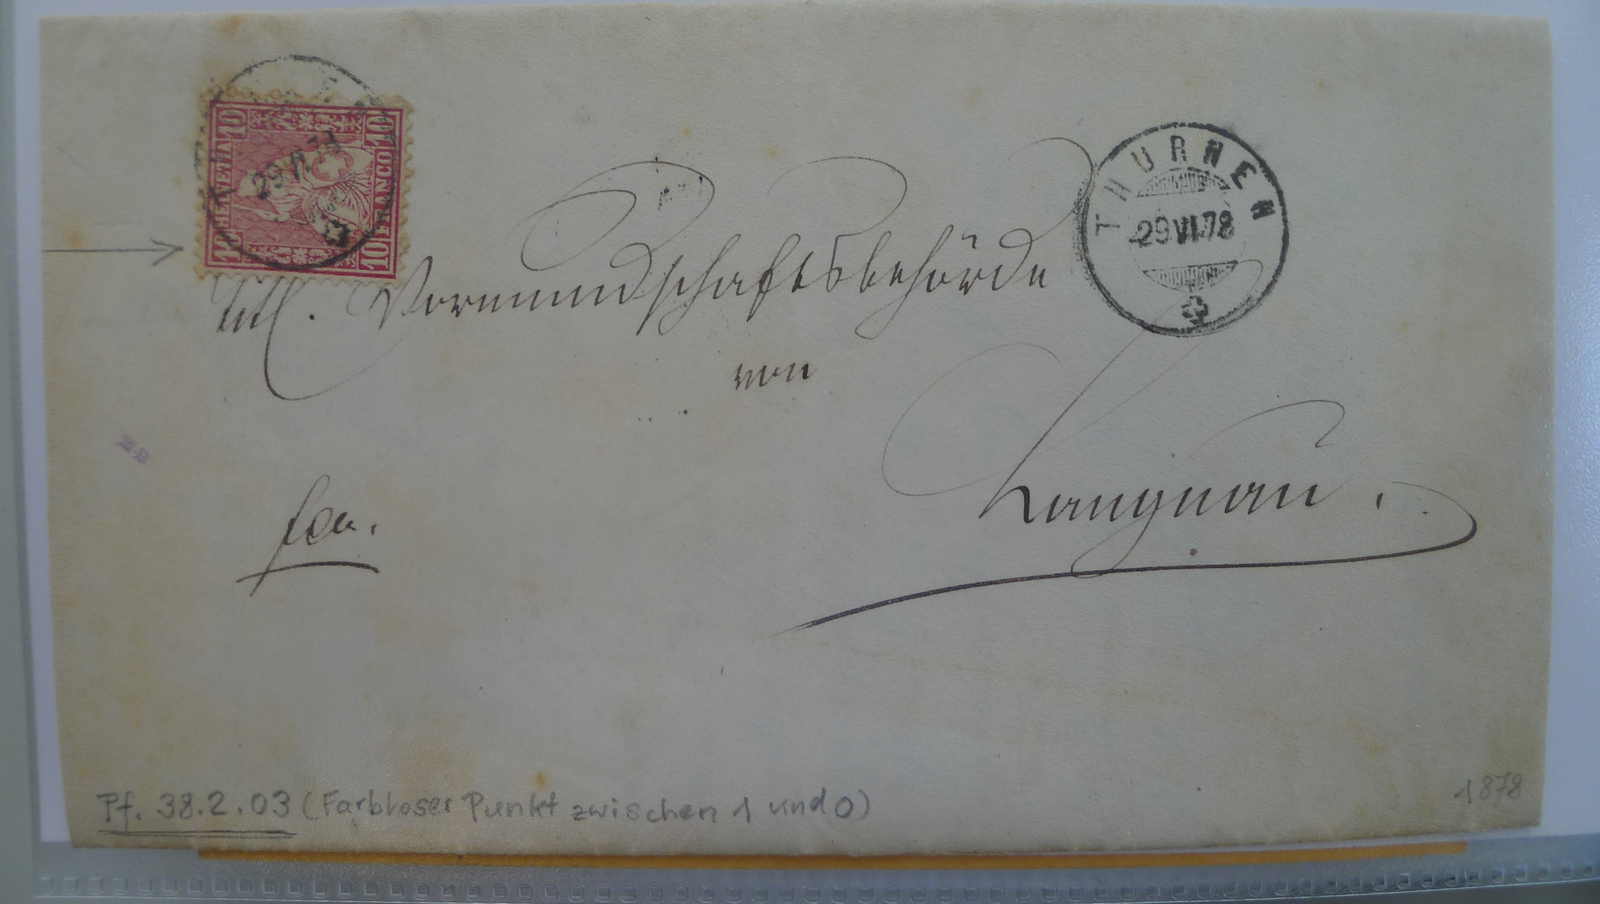 HELVETIA 10
FRANCO 10
10
10
29 VI 7
THURNEN
29 VI 78
Titl. Vormundschaftsbehörde
von
Langnau.
Pf. 38.2.03 (Farbloser Punkt zwischen 1 und 0)
1878